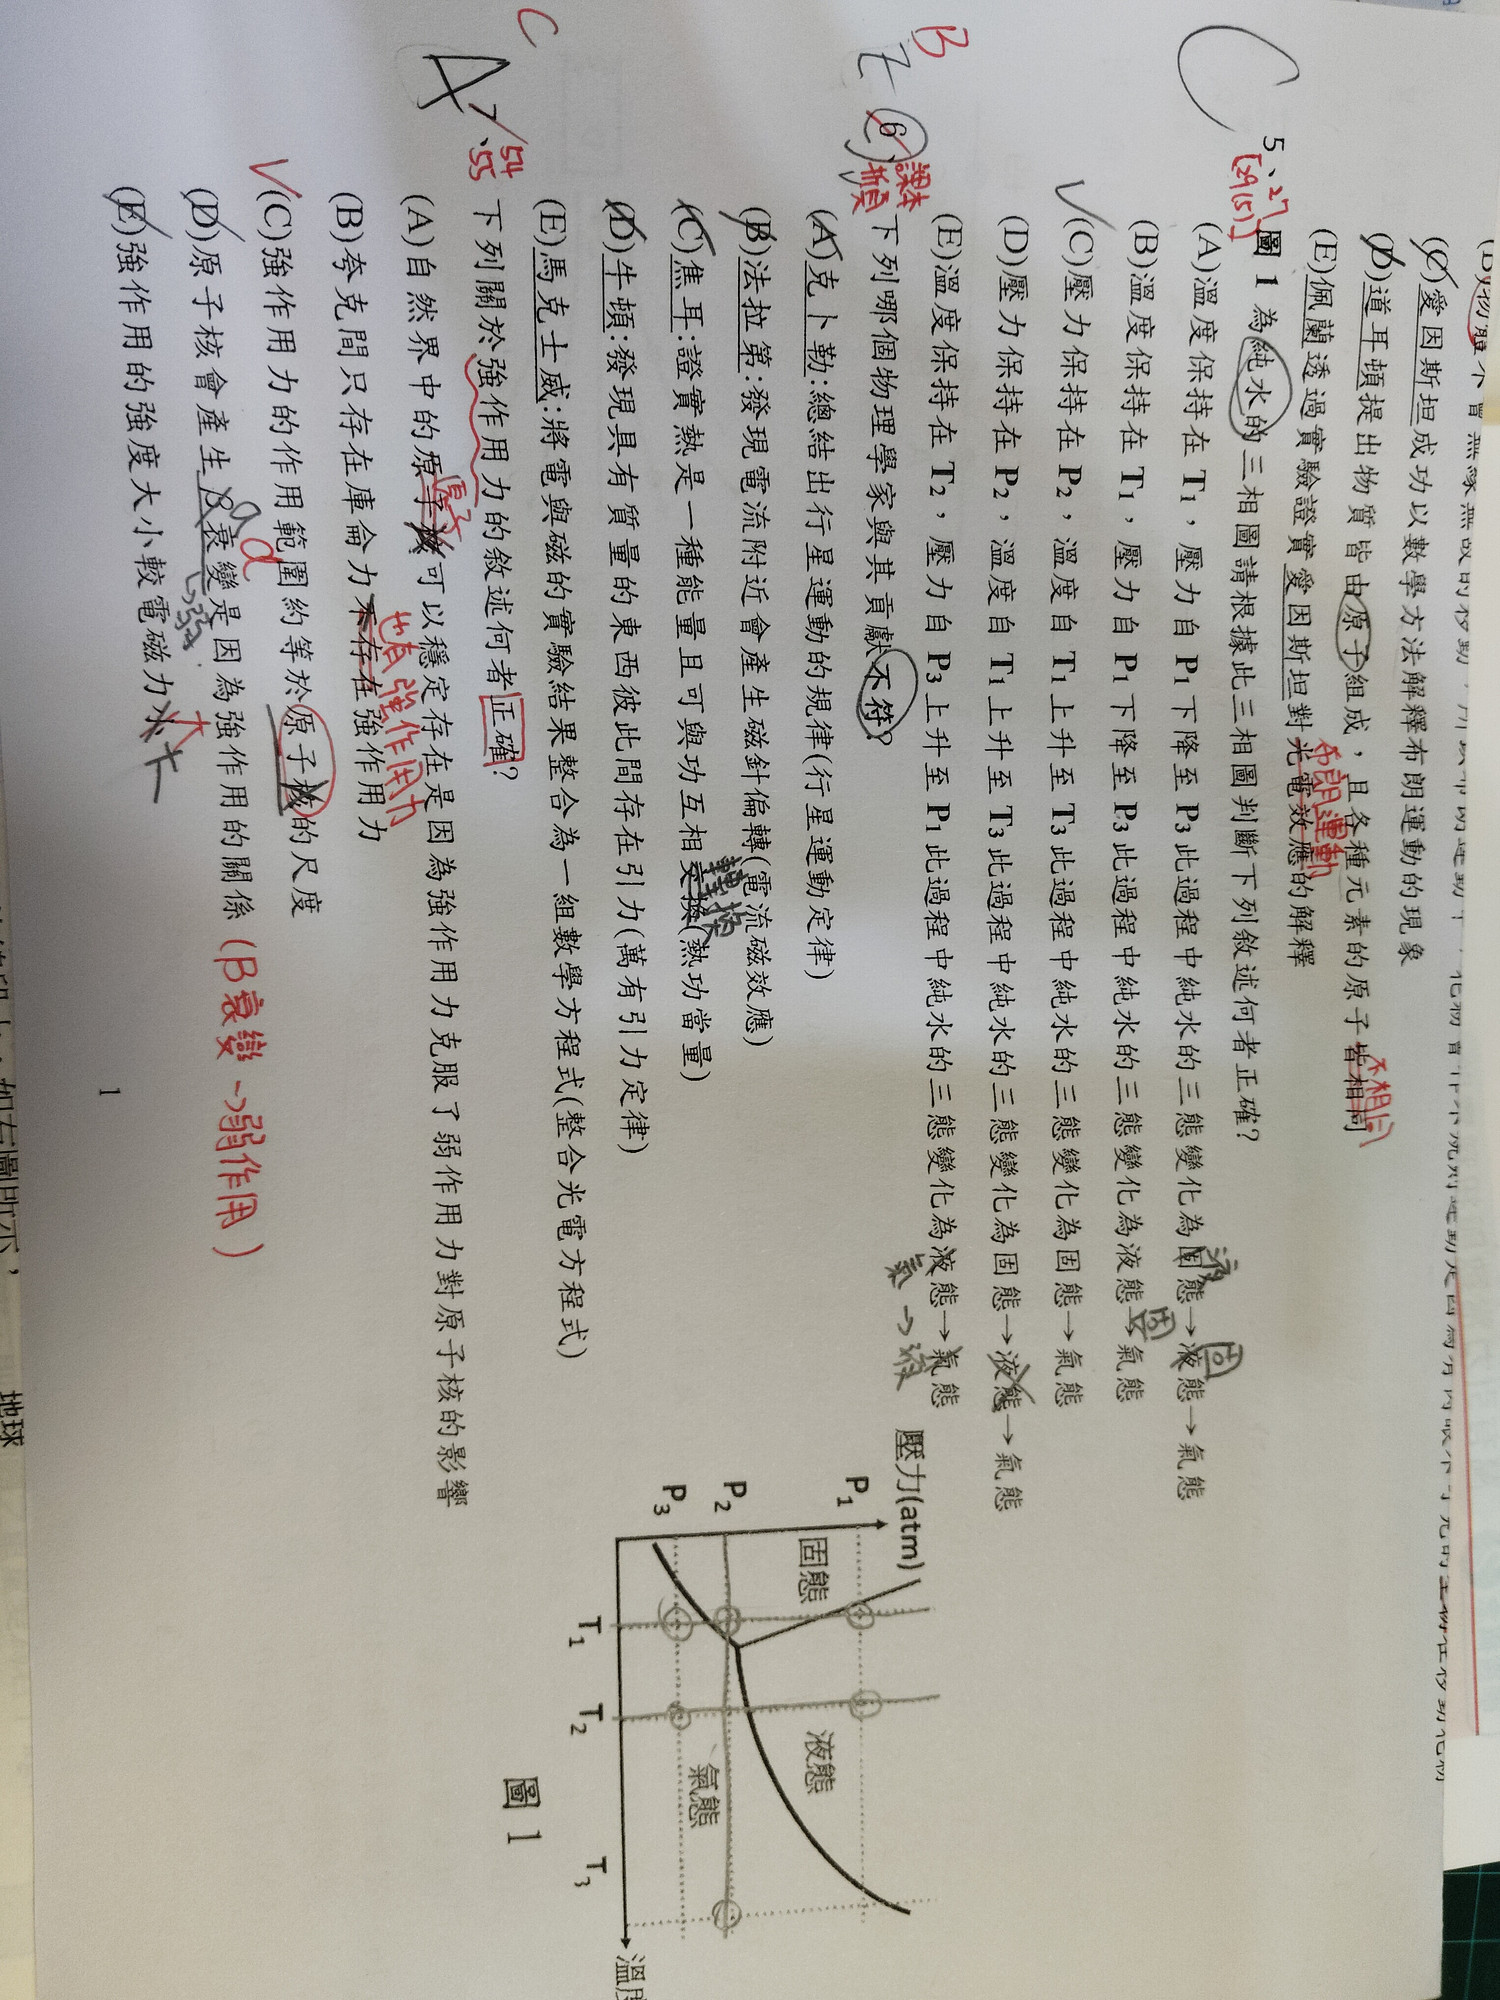 (C)愛因斯坦成功以數學方法解釋布朗運動的現象
(D)道耳頓提出物質皆由原子組成，且各種元素的原子皆相同
不相同
(E)佩蘭透過實驗證實愛因斯坦對光電效應的解釋
布朗運動
C
5、27
[29(5)]
圖 1 為純水的三相圖請根據此三相圖判斷下列敘述何者正確?
(A)溫度保持在 T1，壓力自 P1 下降至 P3 此過程中純水的三態變化為固態→液態→氣態
液 固
(B)溫度保持在 T1，壓力自 P1 下降至 P3 此過程中純水的三態變化為液態→氣態
固
(C)壓力保持在 P2，溫度自 T1 上升至 T3 此過程中純水的三態變化為固態→氣態
(D)壓力保持在 P2，溫度自 T1 上升至 T3 此過程中純水的三態變化為固態→液態→氣態
(E)溫度保持在 T2，壓力自 P3 上升至 P1 此過程中純水的三態變化為液態→氣態
氣→液
B
E
6、課本
下列哪個物理學家與其貢獻不符?
(A)克卜勒:總結出行星運動的規律(行星運動定律)
(B)法拉第:發現電流附近會產生磁針偏轉(電流磁效應)
(C)焦耳:證實熱是一種能量且可與功互相交換(熱功當量)
轉換
(D)牛頓:發現具有質量的東西彼此間存在引力(萬有引力定律)
(E)馬克士威:將電與磁的實驗結果整合為一組數學方程式(整合光電方程式)
C
A
7、54
55
下列關於強作用力的敘述何者正確?
(A)自然界中的原子核可以穩定存在是因為強作用力克服了弱作用力對原子核的影響
原子
(B)夸克間只存在庫侖力不存在強作用力
也有強作用力
(C)強作用力的作用範圍約等於原子核的尺度
(D)原子核會產生β衰變是因為強作用的關係(β衰變→弱作用)
α
→弱
(E)強作用的強度大小較電磁力小
大
壓力(atm)
P1
P2
P3
固態
液態
氣態
T1
T2
T3
溫度
圖 1
1
如右圖所示，
地球